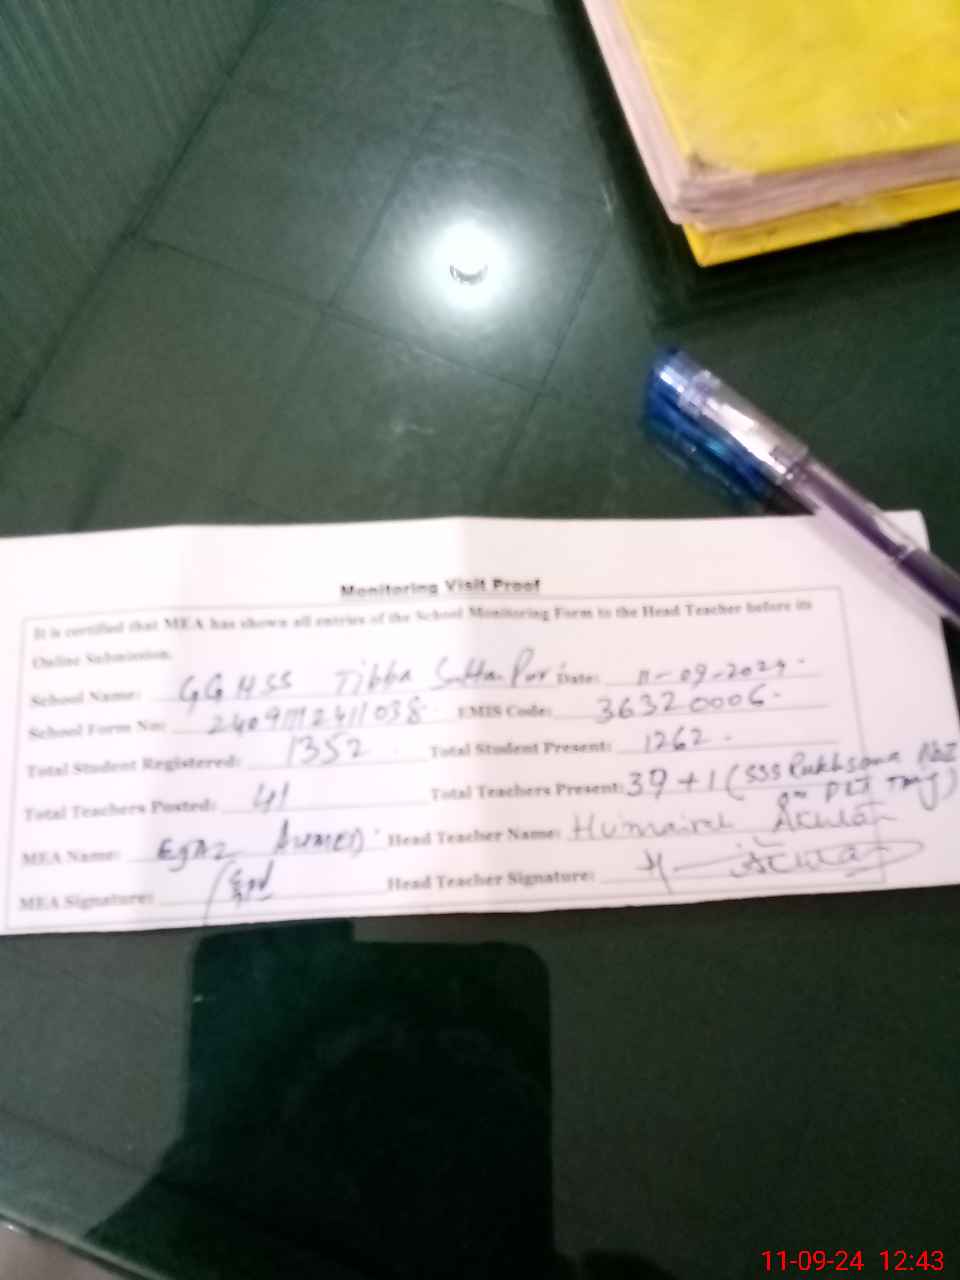 Monitoring Visit Proof
It is certified that MEA has shown all entries of the School Monitoring Form to the Head Teacher before its
Online Submission.
School Name: GGHSS Tibba Sultan Pur Date: 11-09-2024
School Form No: EMIS Code: 36320006
Total Student Registered: 1352 Total Student Present: 1262
Total Teachers Posted: 41 Total Teachers Present: 39+1 (SSS Rukhsana
MEA Name: Ejaz Ahmed Head Teacher Name: Humaira Akhtar
MEA Signature: Head Teacher Signature:
11-09-24 12:43